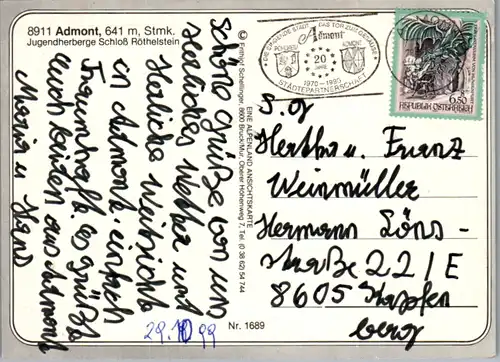 8911 Admont, 641 m, Stmk.
Jugendherberge Schloß Röthelstein
Schöne Grüße von uns
Herrliches Wetter und
Herrliche Weitsicht
in Admont einfach
Traumhaft es grüßt
euch beiden aus Admont
Maria u Hans
29.10 99
© Frithjof Schellinger, 8600 Bruck/Mur, Oberer Höhenweg 7, Tel. (0 38 62) 54 744
EINE ALPENLAND ANSICHTSKARTE
Nr. 1689
DAS TOR ZUM GESÄUSE
Admont
ADMONT
20
JAHRE
1970 - 1990
STÄDTEPARTNERSCHAFT
6.50
REPUBLIK ÖSTERREICH
S.g
Hertha u. Franz
Weinmüller
Hermann Löns-
straße 22 I/E
8605 Kapfen
berg